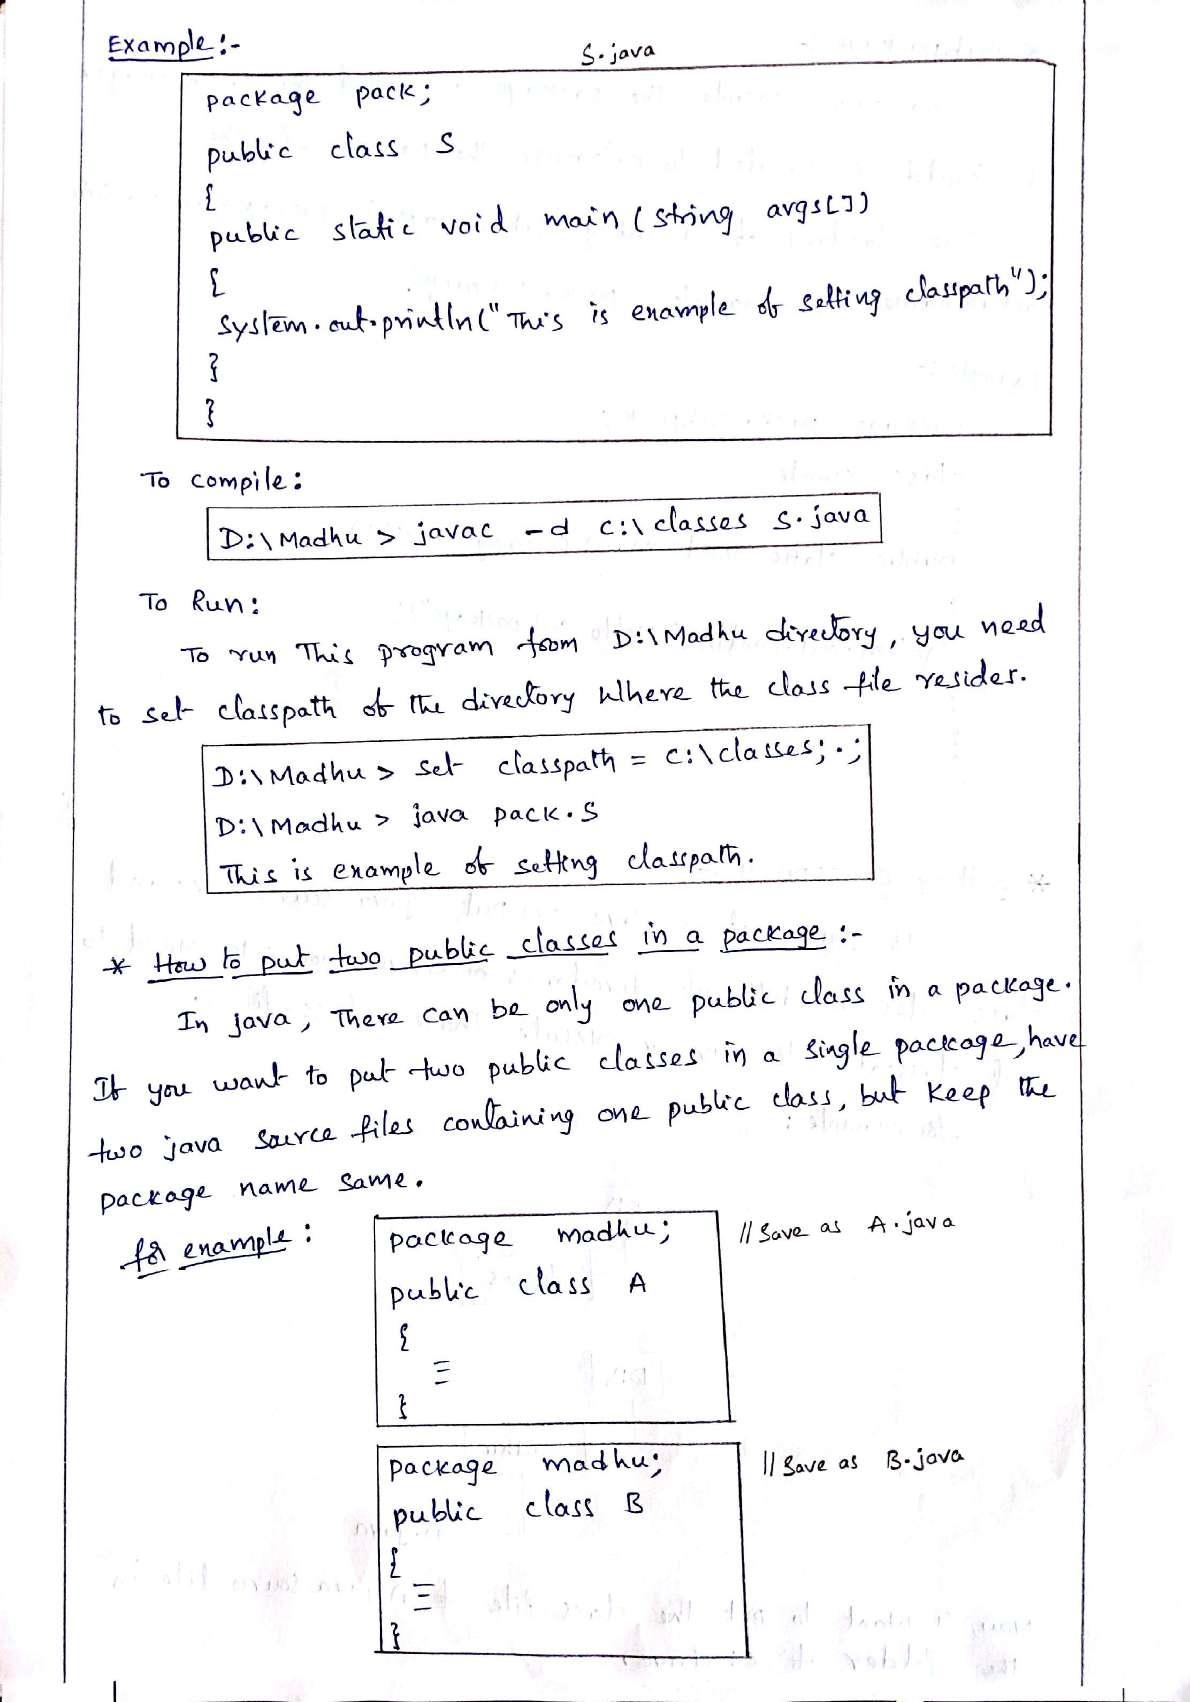 Example:-
S.java
package pack;
public class S
{
public static void main (string args[])
{
system.out.println("This is example of setting classpath");
}
}
To compile:
D:\Madhu > javac -d c:\classes s.java
To Run:
To run This program from D:\Madhu directory, you need
to set classpath of the directory where the class file resides.
D:\Madhu > set classpath = c:\classes;.;
D:\Madhu > java pack.S
This is example of setting classpath.
* How to put two public classes in a package :-
In java, There can be only one public class in a package.
If you want to put two public classes in a single package, have
two java source files containing one public class, but keep the
package name same.
for example:
package madhu; // Save as A.java
public class A
{
}
package madhu; // Save as B.java
public class B
{
}